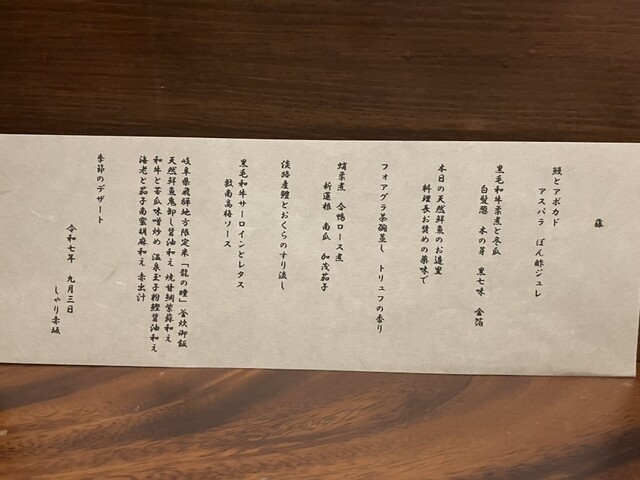 藤
鰻とアボカド
アスパラ　ぽん酢ジュレ
黒毛和牛柔煮と冬瓜
白髪葱　木の芽　黒七味　金箔
本日の天然鮮魚のお造里
料理長お奨めの薬味で
フォアグラ茶碗蒸し　トリュフの香り
蛸柔煮　合鴨ロース煮
新蓮根　南瓜　加茂茄子
淡路産鱧とおくらのすり流し
黒毛和牛サーロインとレタス
敦南高梅ソース
岐阜県飛騨地方限定米「龍の瞳」釜炊御飯
天然鮮魚鬼卸し醤油和え　焼甘鯛紫蘇和え
和牛と苦瓜味噌炒め　温泉玉子粉鰹醤油和え
海老と茄子南蛮胡麻和え　赤出汁
季節のデザート
令和七年　九月三日
しゃり赤坂